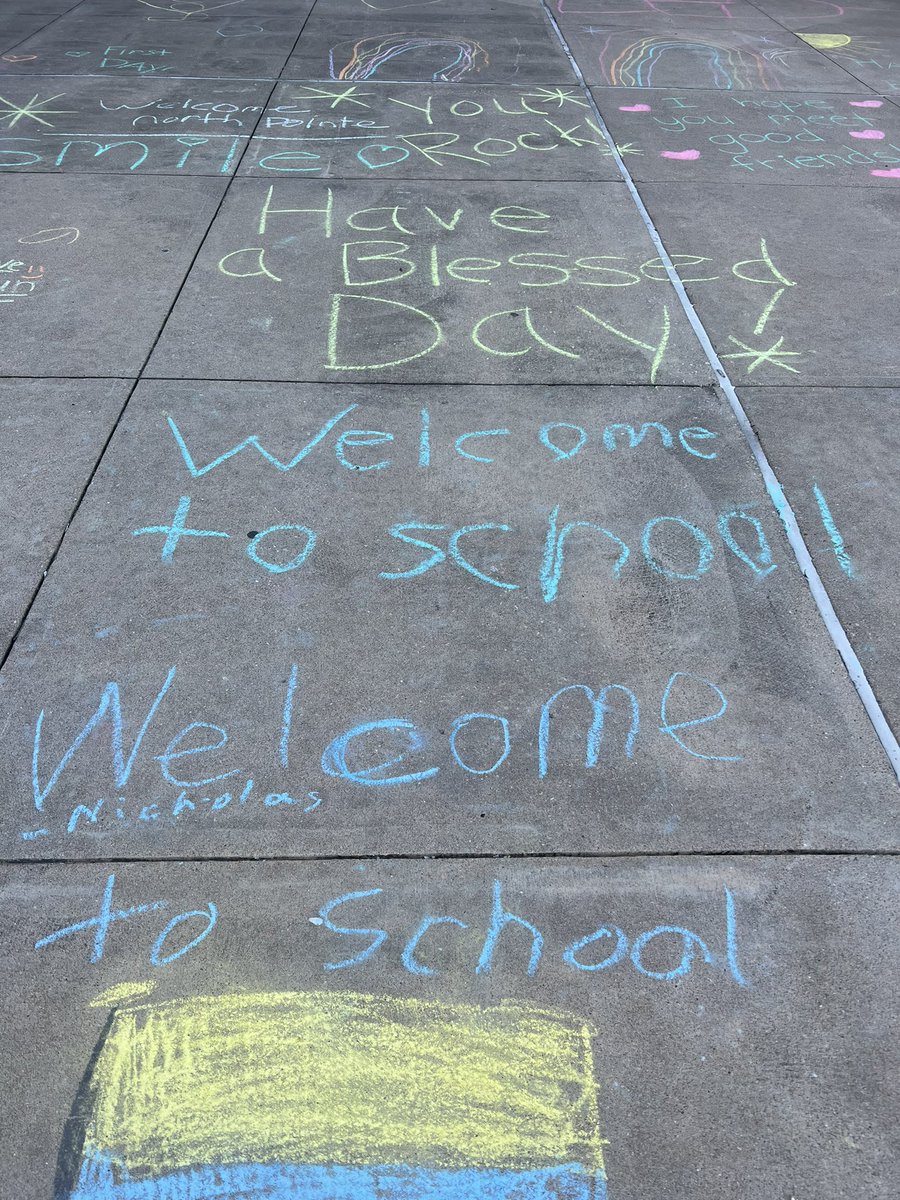 First
DAY!
Welcome
north Pointe
You
Rock!
I hope
you meet
good
friends!
Smile
Have
a Blessed
Day!
Welcome
to school
Welcome
- Nicholas
to School